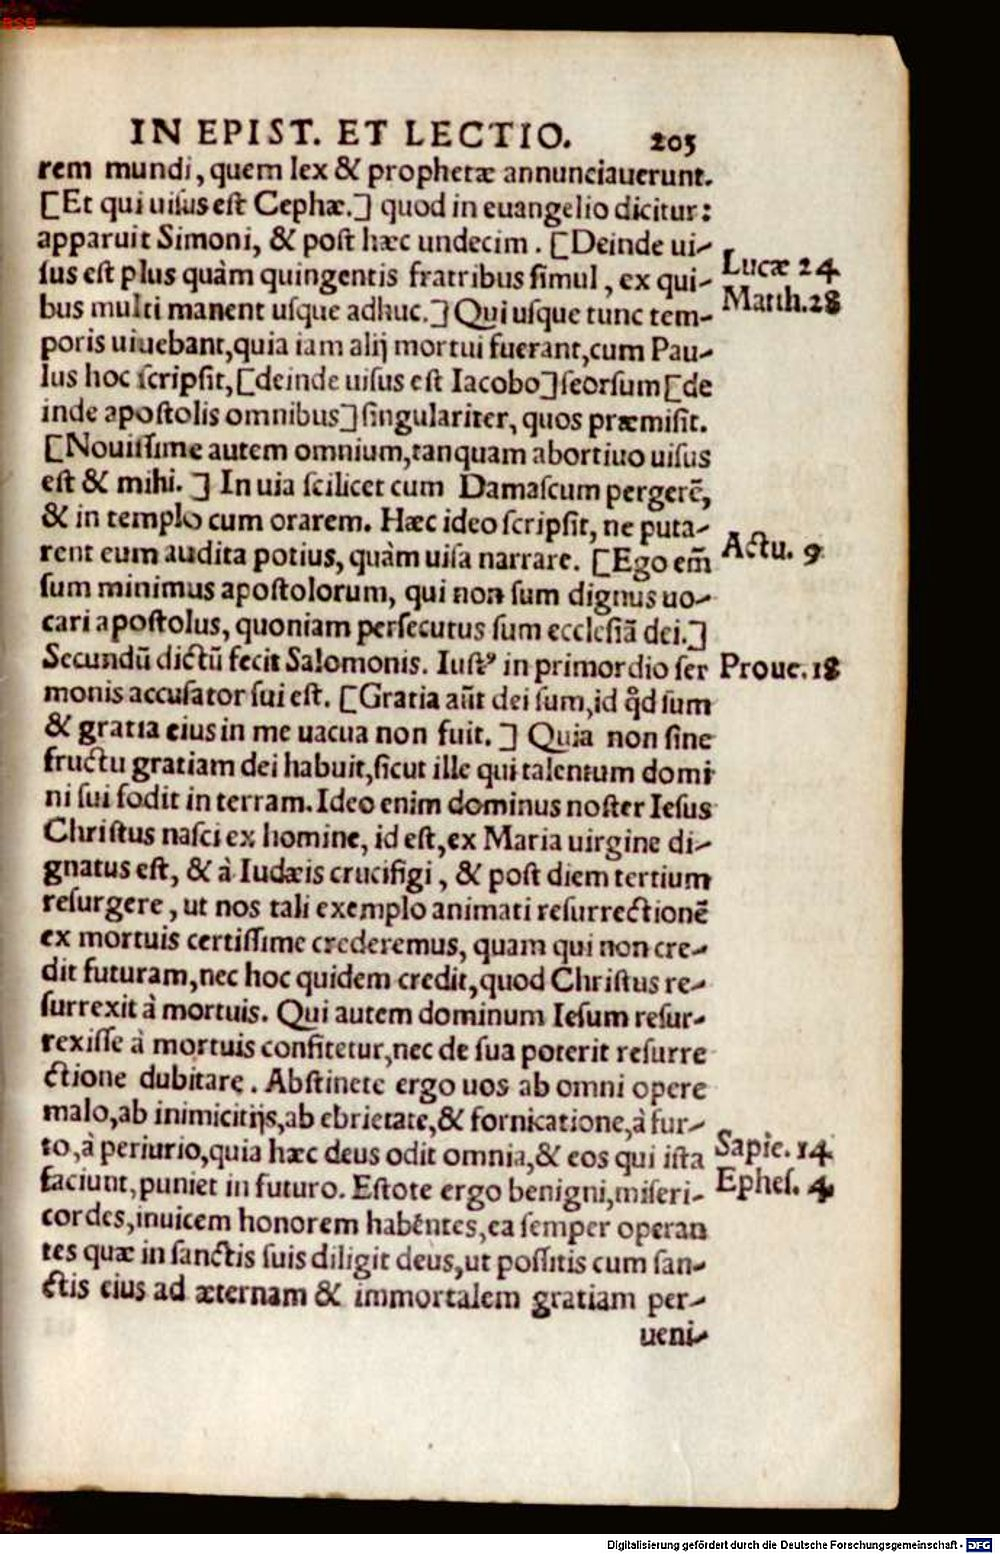 BSB
IN EPIST. ET LECTIO. 205
rem mundi, quem lex & prophetæ annunciauerunt.
[Et qui uisus est Cephæ.] quod in euangelio dicitur:
apparuit Simoni, & post hæc undecim. [Deinde ui-
sus est plus quàm quingentis fratribus simul, ex qui-
Lucæ 24
bus multi manent usque adhuc.] Qui usque tunc tem-
Matth. 28
poris uiuebant, quia iam alij mortui fuerant, cum Pau-
lus hoc scripsit, [deinde uisus est Iacobo] seorsum [de
inde apostolis omnibus] singulariter, quos præmisit.
[Nouissime autem omnium, tanquam abortiuo uisus
est & mihi.] In uia scilicet cum Damascum pergerẽ,
& in templo cum orarem. Hæc ideo scripsit, ne puta-
rent eum audita potius, quàm uisa narrare. [Ego em̃
Actu. 9
sum minimus apostolorum, qui non sum dignus uo-
cari apostolus, quoniam persecutus sum ecclesiã dei.]
Secundũ dictũ fecit Salomonis. Iustꝰ in primordio ser
Prouc. 18
monis accusator sui est. [Gratia aũt dei sum, id qđ sum
& gratia eius in me uacua non fuit.] Quia non sine
fructu gratiam dei habuit, sicut ille qui talentum domi
ni sui fodit in terram. Ideo enim dominus noster Iesus
Christus nasci ex homine, id est, ex Maria uirgine di-
gnatus est, & à Iudæis crucifigi, & post diem tertium
resurgere, ut nos tali exemplo animati resurrectionẽ
ex mortuis certissime crederemus, quam qui non cre-
dit futuram, nec hoc quidem credit, quod Christus re-
surrexit à mortuis. Qui autem dominum Iesum resur-
rexisse à mortuis confitetur, nec de sua poterit resurre
ctione dubitare. Abstinete ergo uos ab omni opere
malo, ab inimicitijs, ab ebrietate, & fornicatione, à fur-
to, à periurio, quia hæc deus odit omnia, & eos qui ista
Sapie. 14
faciunt, puniet in futuro. Estote ergo benigni, miseri-
Ephes. 4
cordes, inuicem honorem habẽntes, ea semper operan
tes quæ in sanctis suis diligit deus, ut possitis cum san-
ctis eius ad æternam & immortalem gratiam per-
ueni-
Digitalisierung gefördert durch die Deutsche Forschungsgemeinschaft - DFG